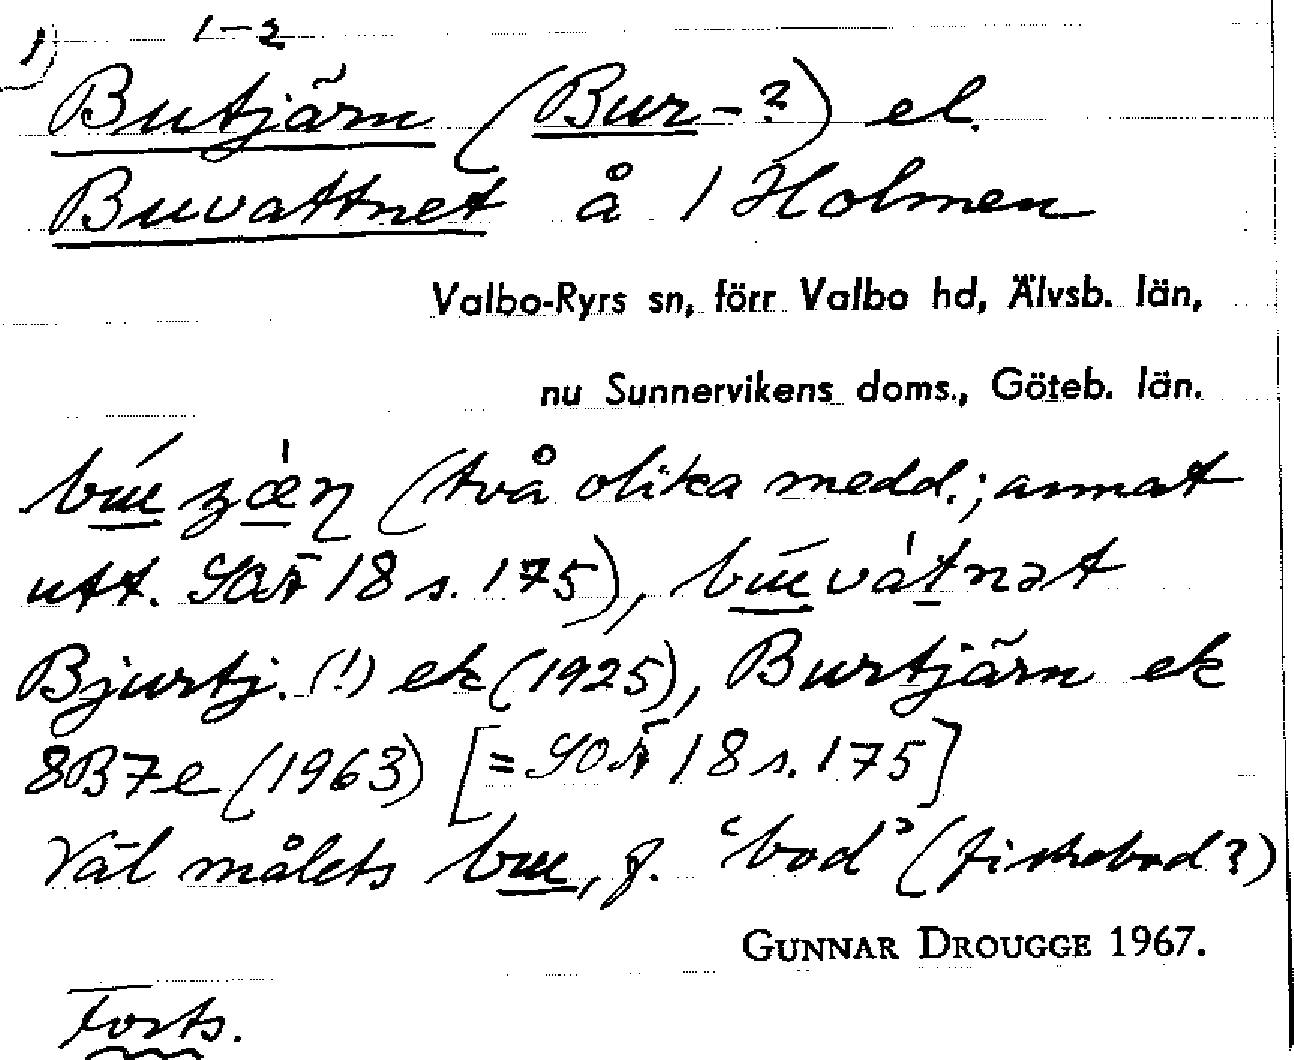 1) 1-2
Butjärn (Bur-?) el.
Buvattnet å 1 Holmen
Valbo-Ryrs sn, förr Valbo hd, Älvsb. län,
nu Sunnervikens doms., Göteb. län.
(två olika medd.; annat
utt. SOÄ 18 s. 175),
Bjurtj. (!) ek (1925), Burtjärn ek
8B7e (1963) [= SOÄ 18 s. 175]
Väl målets bu, f. ‘bod’ (fiskebod?)
GUNNAR DROUGGE 1967.
Forts.